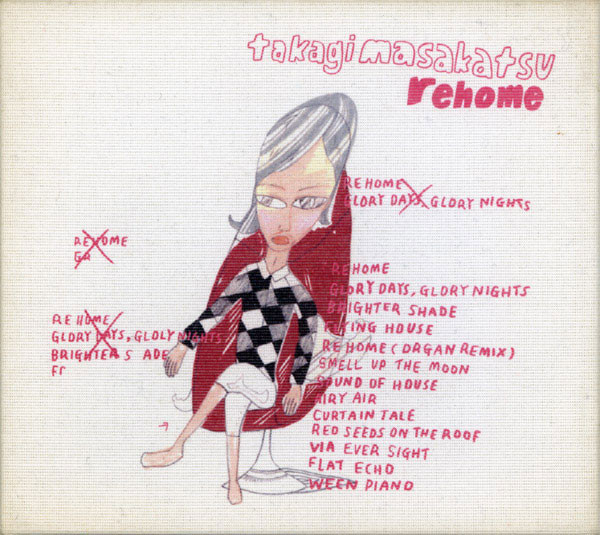 takagi masakatsu
rehome
REHOME
GLORY DAYS, GLORY NIGHTS
REHOME
GR
REHOME
GLORY DAYS, GLORY NIGHTS
BRIGHTER SHADE
FLYING HOUSE
REHOME (ORGAN REMIX)
SMELL UP THE MOON
SOUND OF HOUSE
AIRY AIR
CURTAIN TALE
RED SEEDS ON THE ROOF
VIA EVER SIGHT
FLAT ECHO
WEEN PIANO
REHOME
GLORY DAYS, GLOLY NIGHTS
BRIGHTER S ADE